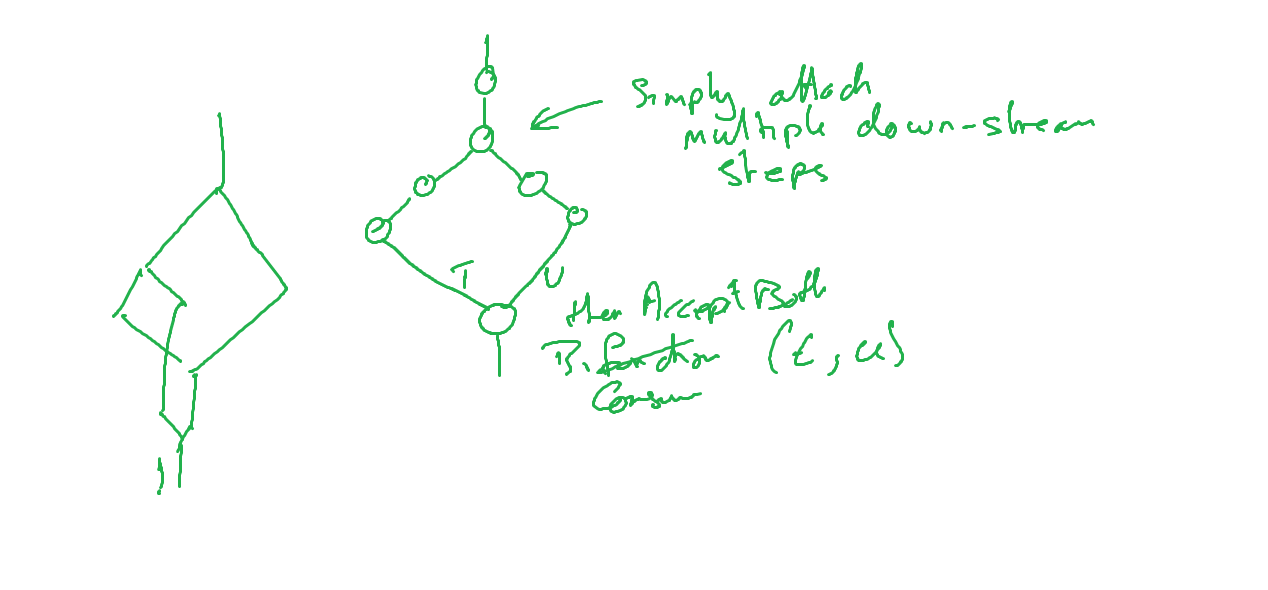 Simply attach
multiple down-stream
steps
T
U
then Accept Both
Bifunction (t, u)
Consum
!